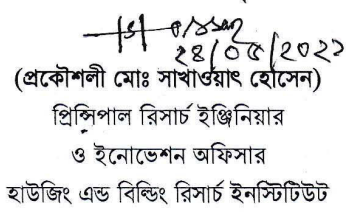 ২৪/০৫/২০২২
(প্রকৌশলী মোঃ সাখাওয়াৎ হোসেন)
প্রিন্সিপাল রিসার্চ ইঞ্জিনিয়ার
ও ইনোভেশন অফিসার
হাউজিং এন্ড বিল্ডিং রিসার্চ ইনস্টিটিউট